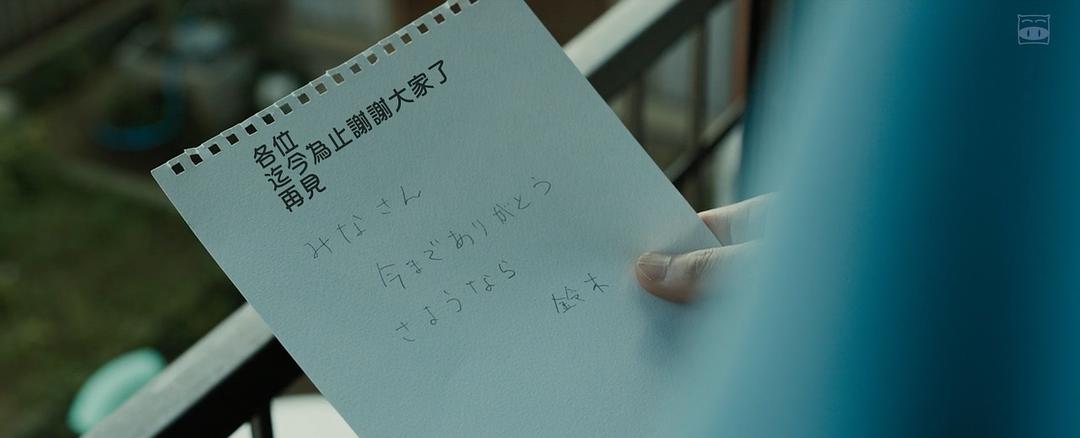 各位
迄今為止謝謝大家了
再見
みなさん
今までありがとう
さようなら
鈴木